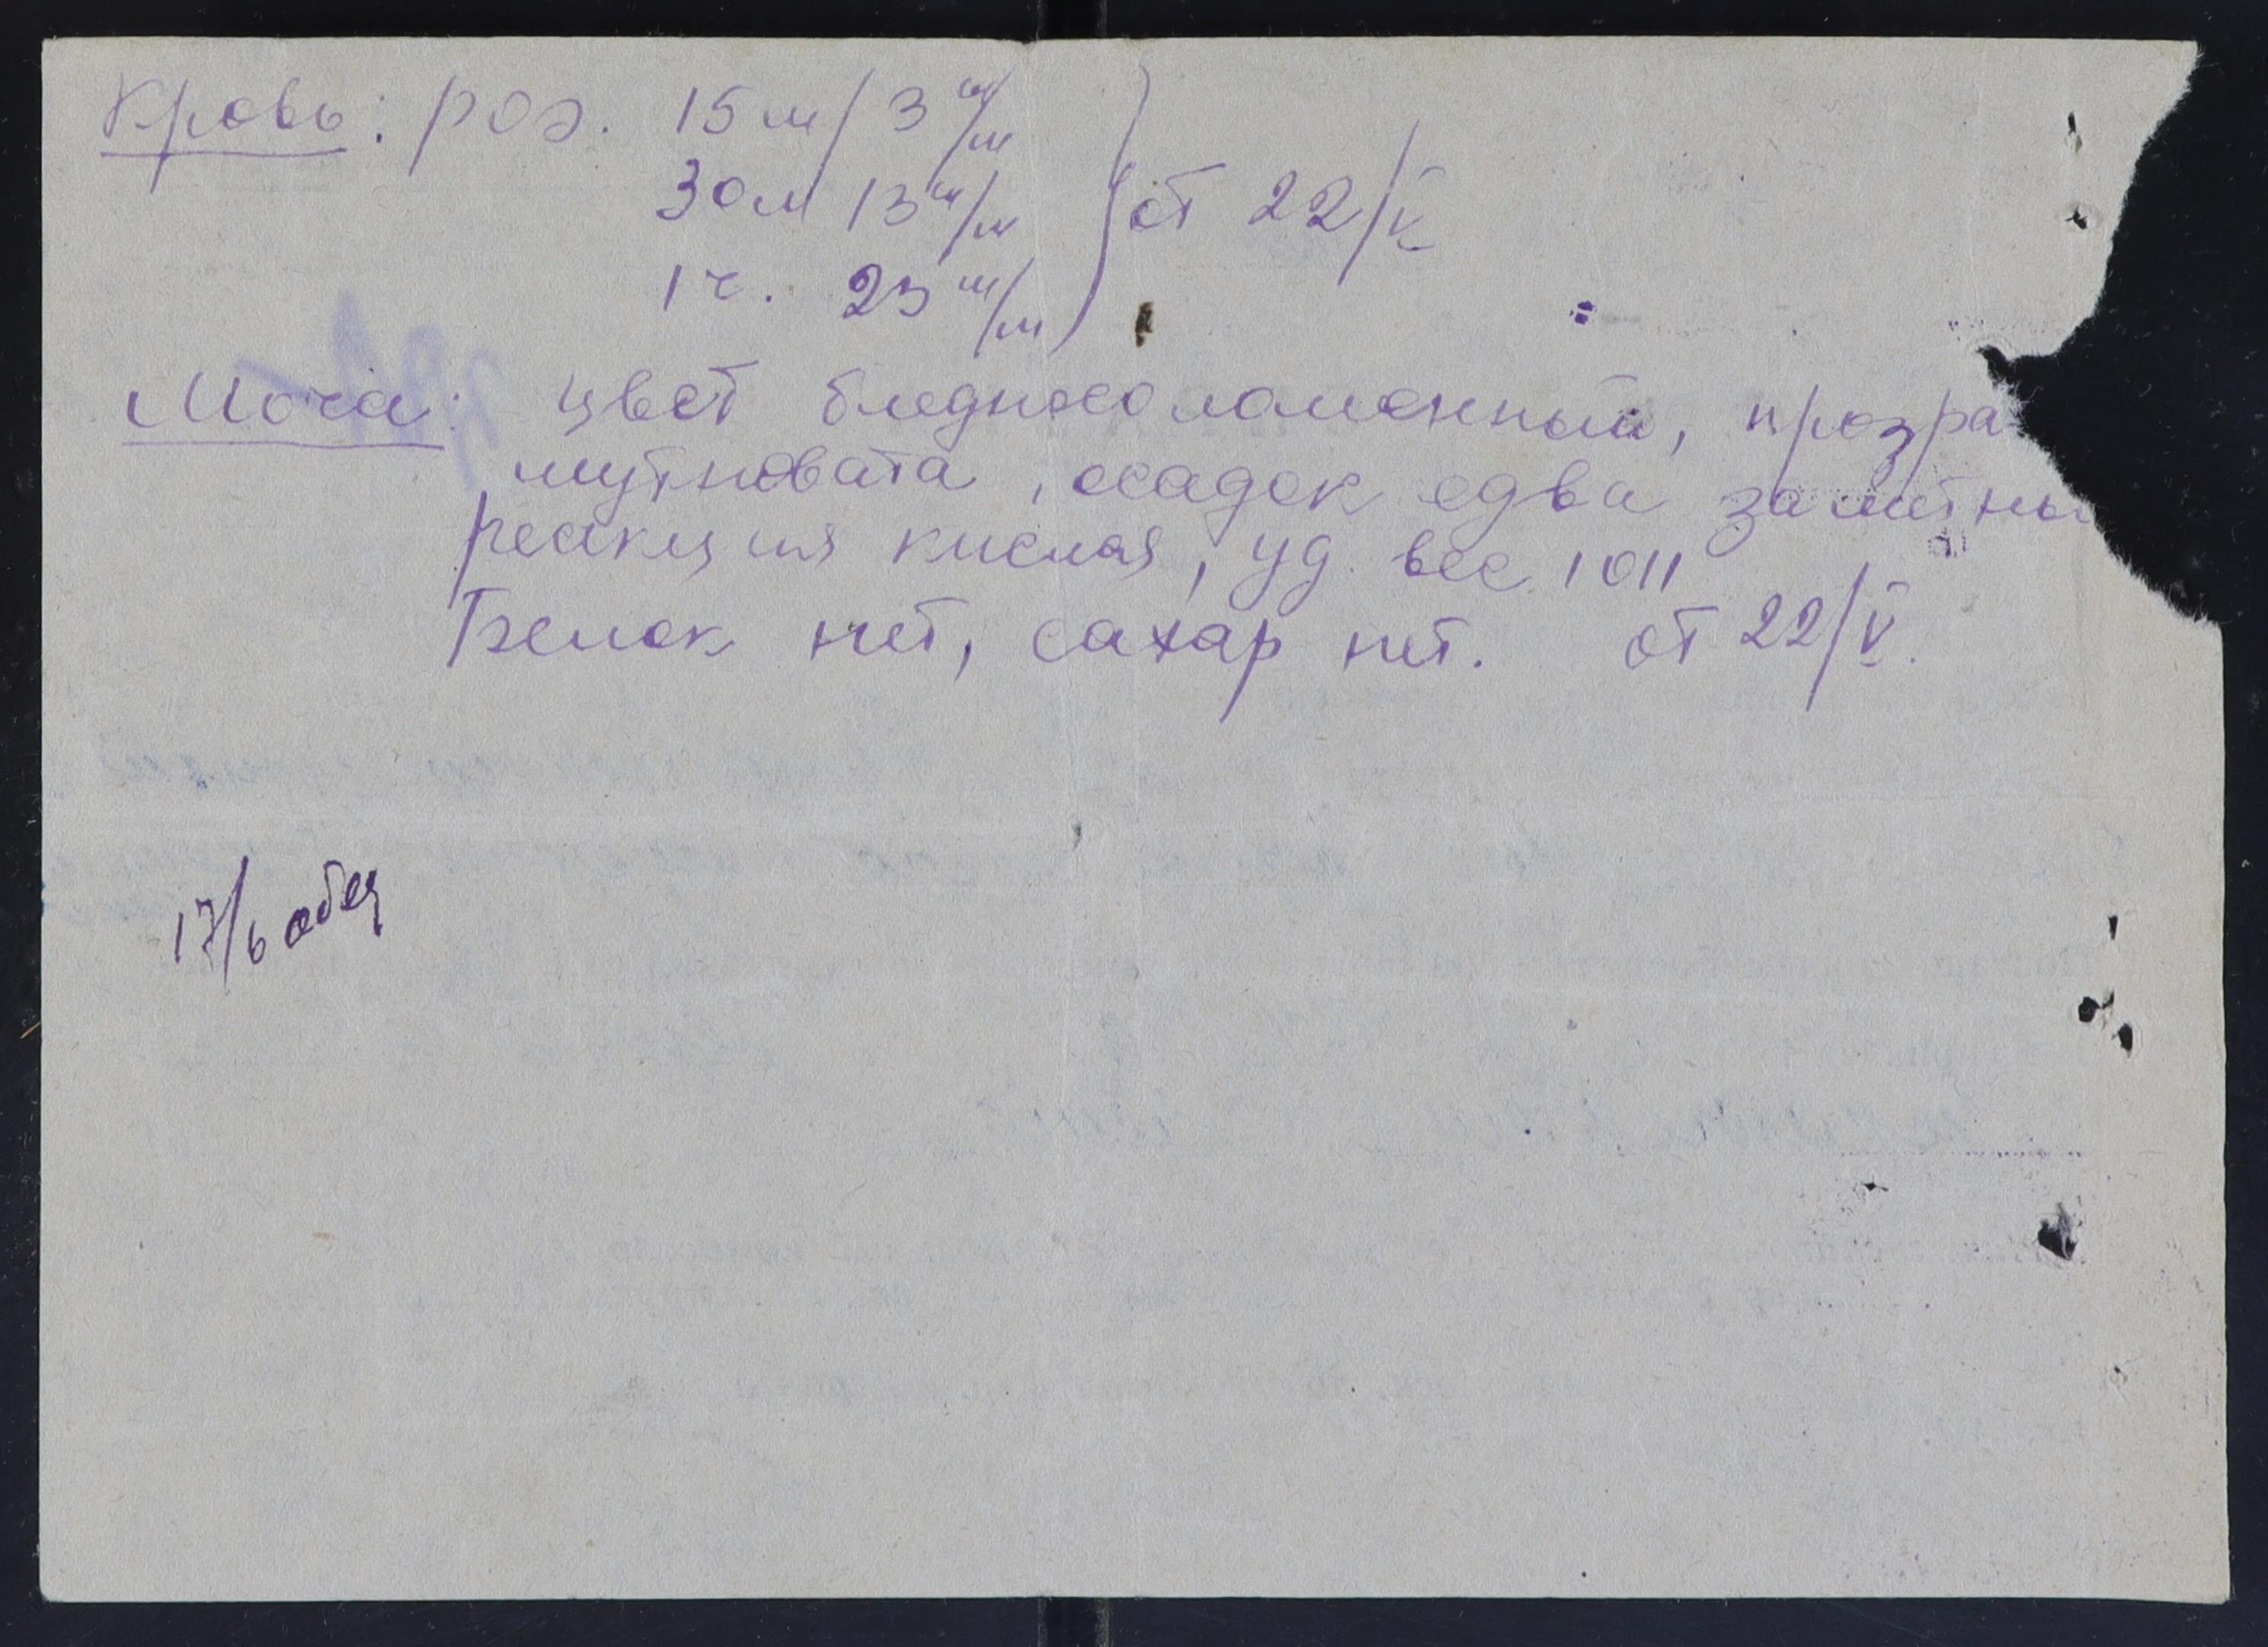 Кровь: роэ. 15 м/ 3 м/м
30 м/ 13 м/м } от 22/V
1 ч. 23 м/м
Моча: цвет бледносоломенный, прозра
мутновата, осадок едва заметны
реакция кислая, уд. вес 1011
Белок нет, сахар нет. от 22/V.
17/6